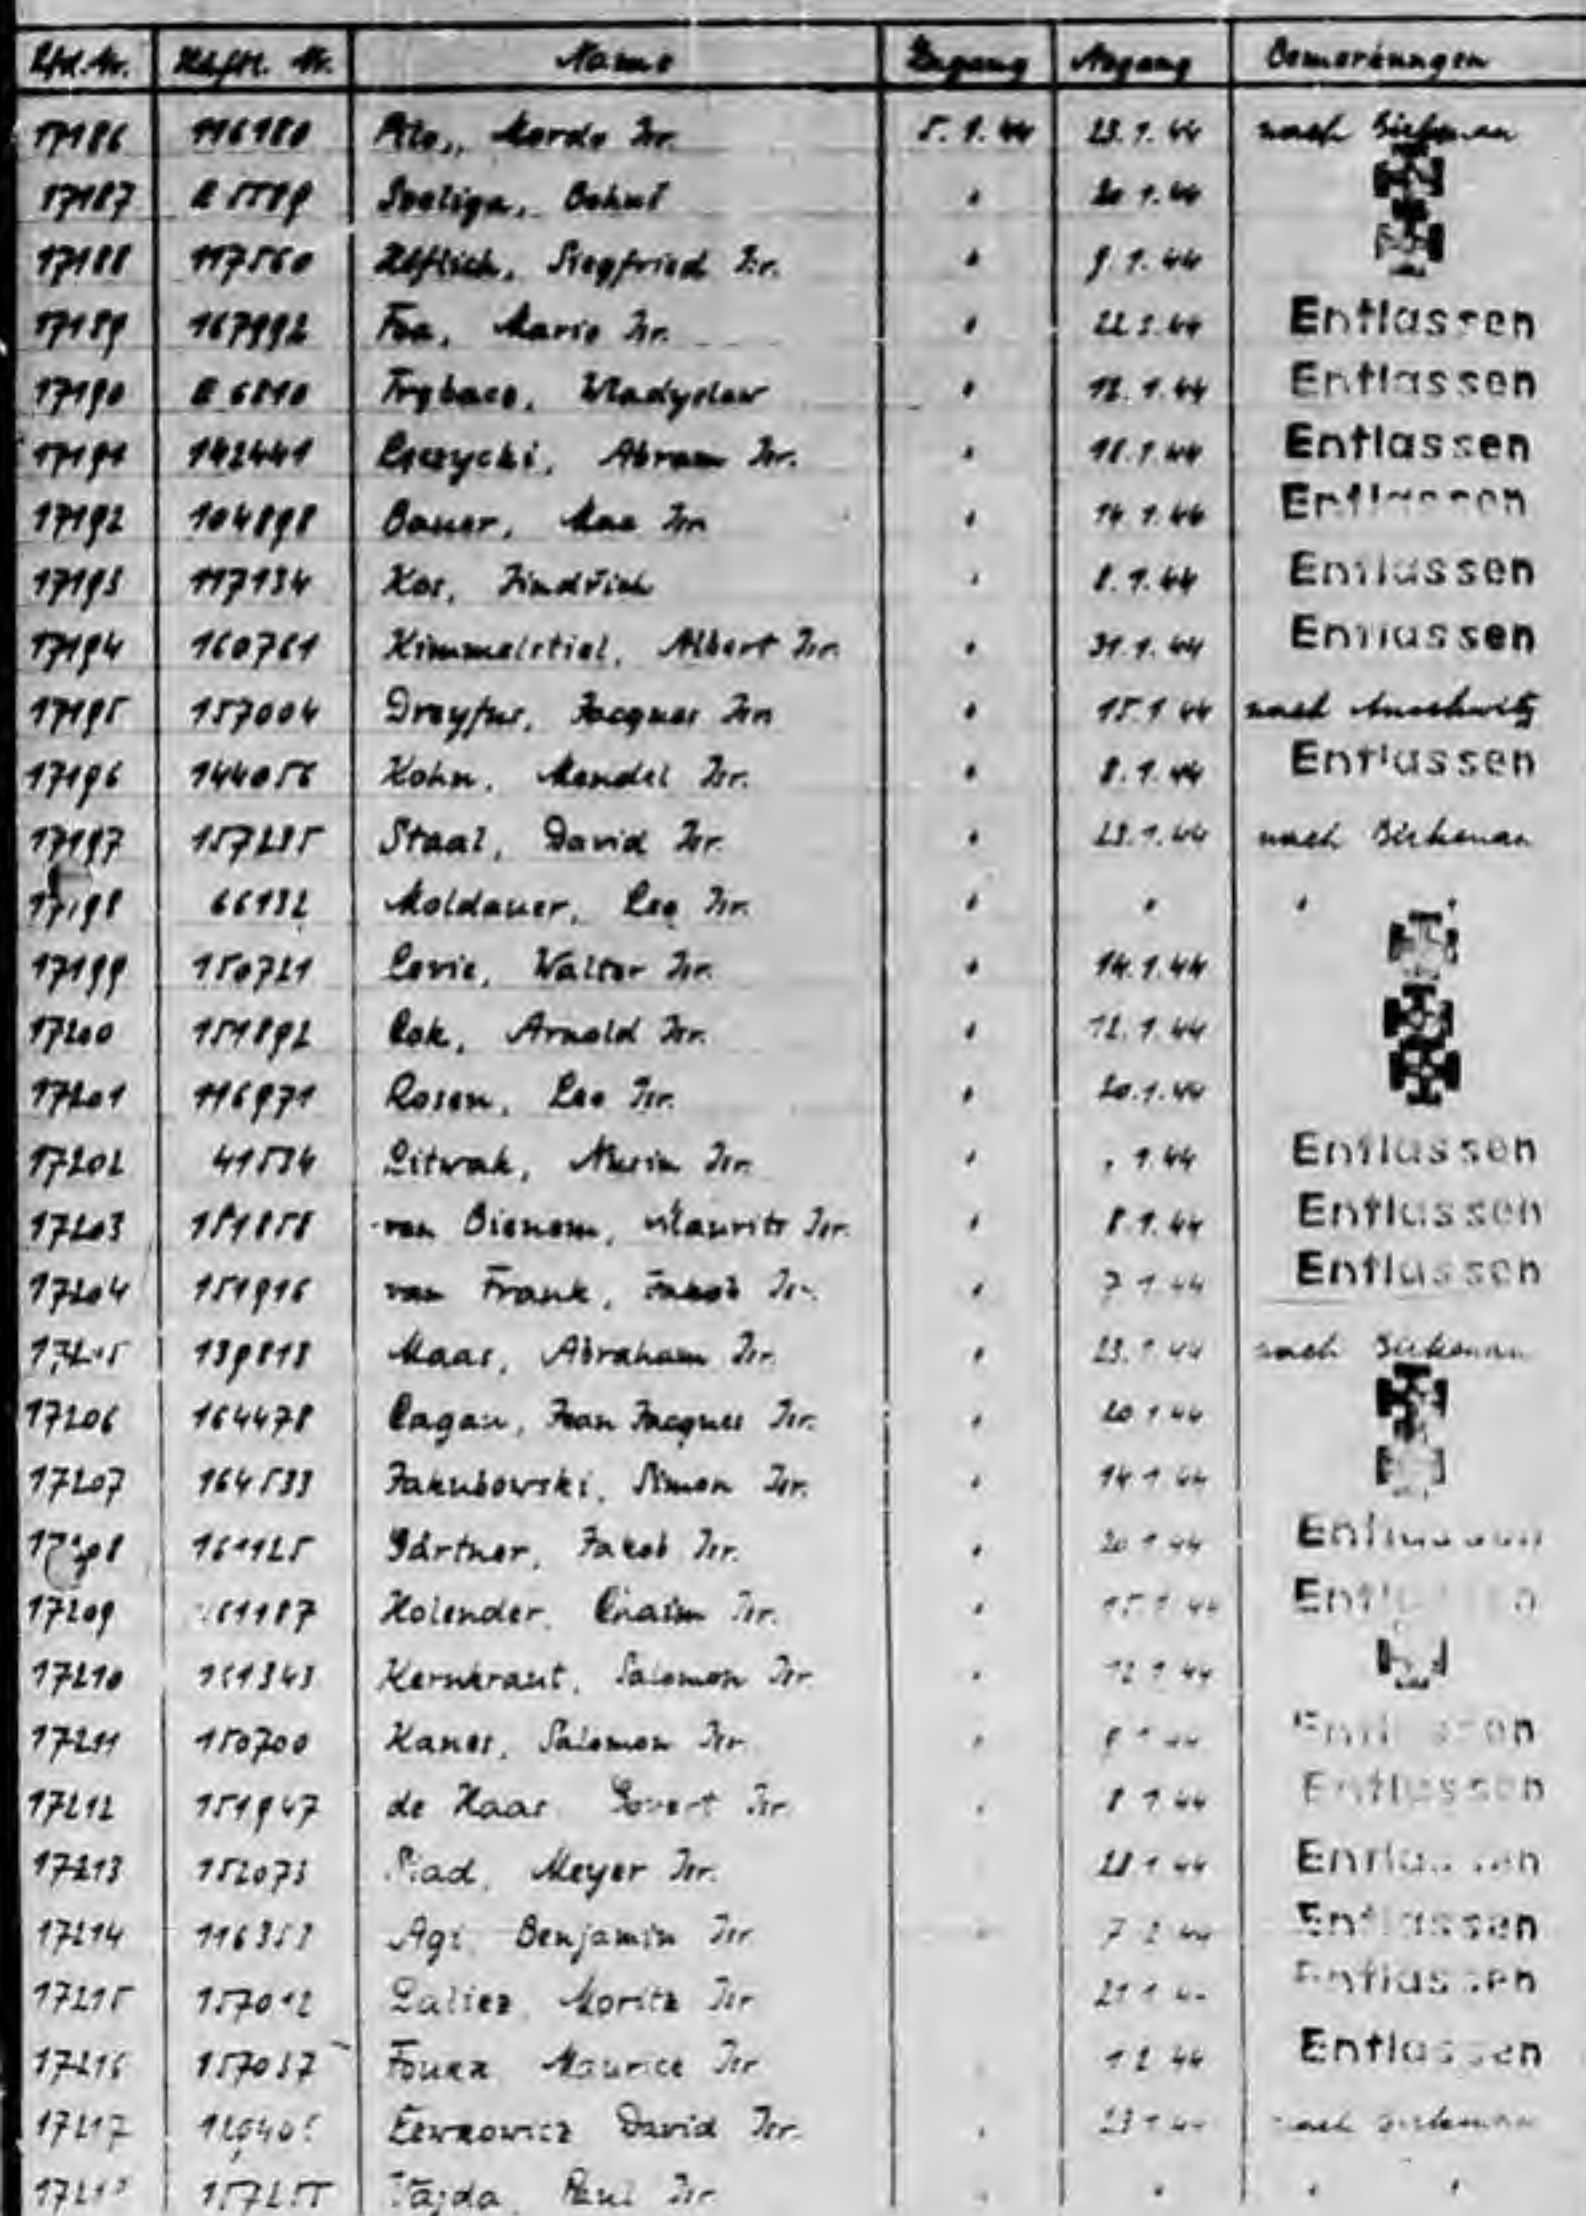 Lfd.Nr. Häftl. Nr. Name Zugang Abgang Bemerkungen
17186 116180 Mordo Isr. 5.1.44 23.1.44 nach Birkenau
17187 20.1.44
17188 117560 Siegfried Isr. " 9.1.44
17189 167992 Foa, Mario Isr. " Entlassen
17190 E 6810 Wladyslaw " 12.1.44 Entlassen
17191 142441 Abram Isr. " 18.1.44 Entlassen
17192 104898 Bauer, Max Isr. " 14.1.44 Entlassen
17193 117134 Kos, Jindřich " 8.1.44 Entlassen
17194 160761 Kimmelstiel, Albert Isr. " 31.1.44 Entlassen
17195 157004 Dreyfus, Jacques Isr. " 15.1.44 nach Auschwitz
17196 144056 Kohn, Mendel Isr. " 8.1.44 Entlassen
17197 157235 Staal, David Isr. " 23.1.44 nach Birkenau
17198 66132 Moldauer, Leo Isr. " " " "
17199 150721 Levie, Walter Isr. " 14.1.44
17200 151892 Lok, Arnold Isr. " 12.1.44
17201 116971 Rosen, Leo Isr. " 20.1.44
17202 41534 Litwak, Isr. " 1.44 Entlassen
17203 151858 van Bienem, Maurits Isr. " 8.1.44 Entlassen
17204 151916 van Frank, Jakob Isr. " 7.1.44 Entlassen
17205 139813 Maas, Abraham Isr. " 23.1.44 nach Birkenau
17206 164478 Cagan, Jean Jacques Isr. " 20.1.44
17207 164533 Jakubowski, Simon Isr. " 14.1.44
17208 161125 Gärtner, Jakob Isr. " 20.1.44 Entlassen
17209 Holender, Chaim Isr. " 15.1.44 Entlassen
17210 161343 Kernkraut, Salomon Isr. " 12.1.44
17211 150700 Kanes, Salomon Isr. " Entlassen
17212 151947 de Haas Govert Isr. " 8.1.44 Entlassen
17213 152073 Meyer Isr. 28.1.44 Entlassen
17214 116353 Agi Benjamin Isr. " 7.2.44 Entlassen
17215 157012 Moritz Isr. Entlassen
17216 157037 Maurice Isr. 1.2.44 Entlassen
17217 Lewkowicz David Isr. " 23.1.44 nach Birkenau
157255 Vajda, Paul Isr. " " " "